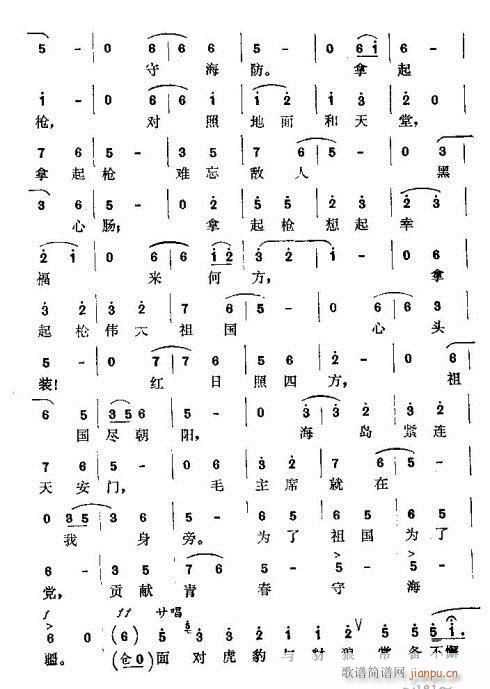 5 - | 0 6 6 6 | 5 - | 0 6 i | 6 6
守海防。拿起
i - | 0 6 6 | i 2 | i 3 | i 2
枪，对照地面和天堂，
7 6 | 5 - | 3 5 | 7 7 | 6 - | 0 3
拿起枪难忘敌人黑
3 6 | 5 - | 0 2 | 5 5 | 6 5 | 3 2
心肠；拿起枪想起幸
2 i | 0 6 6 | i 2 | 3 2 | i - | 0 6
福来何方，拿
3 2 | i 2 | 7 6 | 5 - | 0 6 6 | 3
起枪伟大祖国心头
5 - | 0 7 | 7 6 | 5 6 | 5 - | 0 6
装！红日照四方，祖
6 5 | 3 5 6 | 5 - | 3 3 | 2 3 | 2 2
国尽朝阳，海岛紧连
7 6 | 5 - | 0 2 | 2 | 3 2 | 7 6
天安门，毛主席就在
0 3 5 | 3 2 | i - | 6 5 | 6 5 | 6 5
我身旁。为了祖国为了
6 - | 3 5 | 7 6 | 5 - | 5 - | 5 -
党，贡献青春守海
f ff サ唱
6 0 (6) 5 3 2 3 3 2 3 2 5 5 i.
疆。(仓0)面对虎豹与豺狼常备不懈
歌谱简谱网
jianpu.cn
~181~